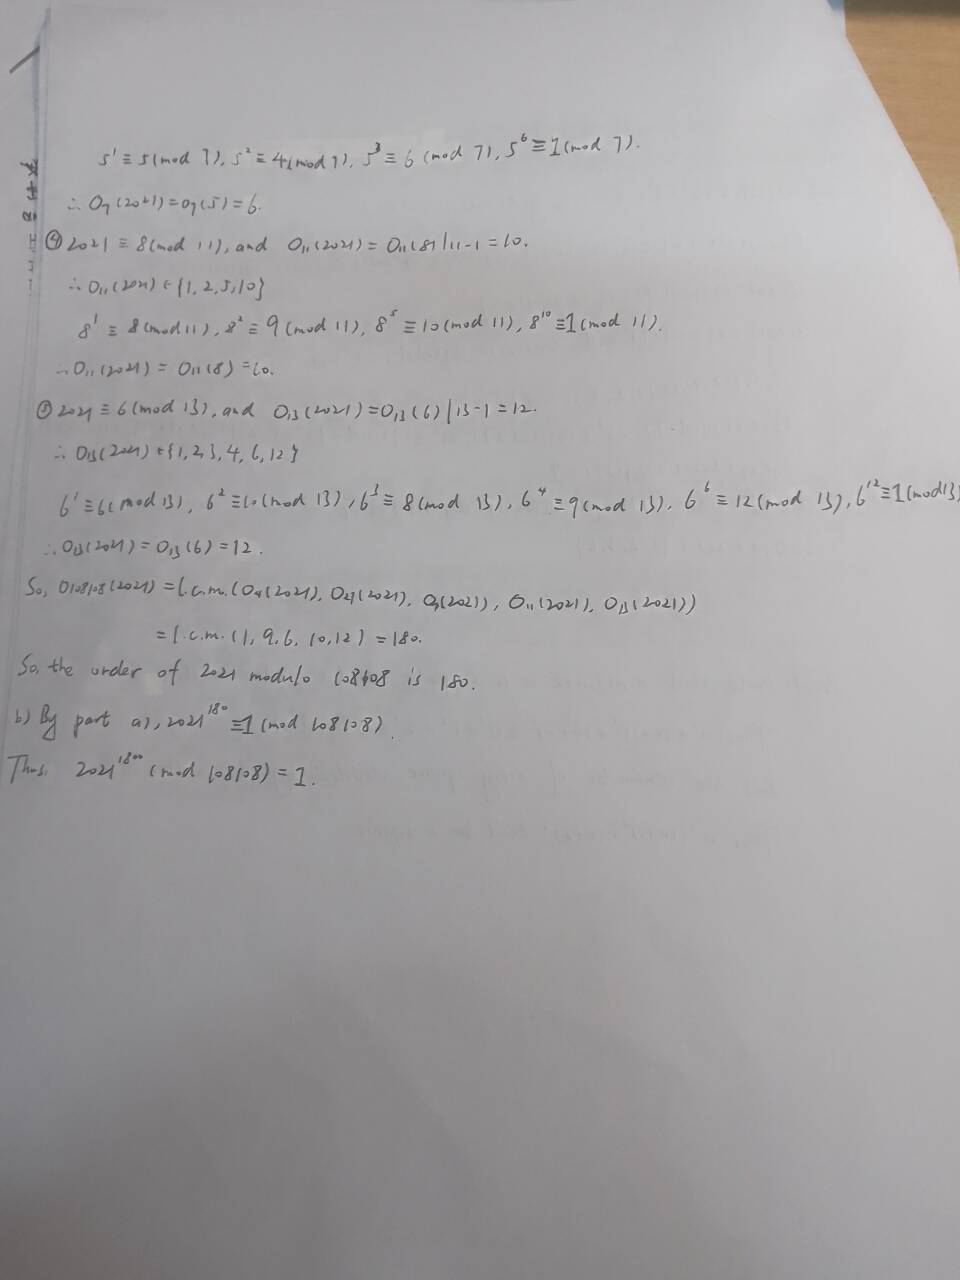 5¹ ≡ 5(mod 7), 5² ≡ 4(mod 7), 5³ ≡ 6 (mod 7), 5⁶ ≡ 1(mod 7).
∴ O₇(2021) = O₇(5) = 6.
④ 2021 ≡ 8(mod 11), and O₁₁(2021) = O₁₁(8) | 11-1 = 10.
∴ O₁₁(2021) ∈ {1,2,5,10}
8¹ ≡ 8(mod 11), 8² ≡ 9(mod 11), 8⁵ ≡ 10(mod 11), 8¹⁰ ≡ 1(mod 11).
∴ O₁₁(2021) = O₁₁(8) = 10.
⑤ 2021 ≡ 6(mod 13), and O₁₃(2021) = O₁₃(6) | 13-1 = 12.
∴ O₁₃(2021) ∈ {1,2,3,4,6,12}
6¹ ≡ 6(mod 13), 6² ≡ 10(mod 13), 6³ ≡ 8(mod 13), 6⁴ ≡ 9(mod 13), 6⁶ ≡ 12(mod 13), 6¹² ≡ 1(mod 13)
∴ O₁₃(2021) = O₁₃(6) = 12.
So, O₁₀₈₁₀₈(2021) = l.c.m.(O₄(2021), O₂₇(2021), O₇(2021)), O₁₁(2021), O₁₃(2021))
= l.c.m.(1, 9, 6, 10, 12) = 180.
So, the order of 2021 modulo 108108 is 180.
b) By part a), 2021¹⁸⁰ ≡ 1 (mod 108108).
Thus, 2021¹⁸⁰⁰ (mod 108108) = 1.